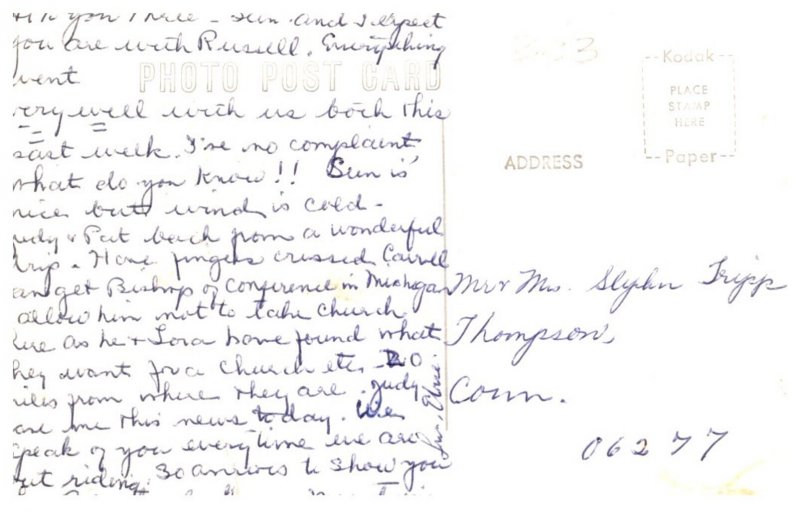 Hi to you Three - Sun. and I expect
you are with Russell. Everything
went
very well with us both this
past week. I've no complaint
what do you know!! Sun is
nice but wind is cold -
Judy & Pat back from a wonderful
trip. Have fingers crossed Carroll
can get Bishop of Conference in Michigan
allow him not to take church
here as he & Lora have found what
they want for a church etc. 20
miles from where they are. Judy
gave me this news today. We
speak of you everytime we are
out riding. So anxious to show you
PHOTO POST CARD
Kodak
PLACE
STAMP
HERE
Paper
ADDRESS
Mr & Mrs. Stephen Tripp
Thompson,
Conn.
06277